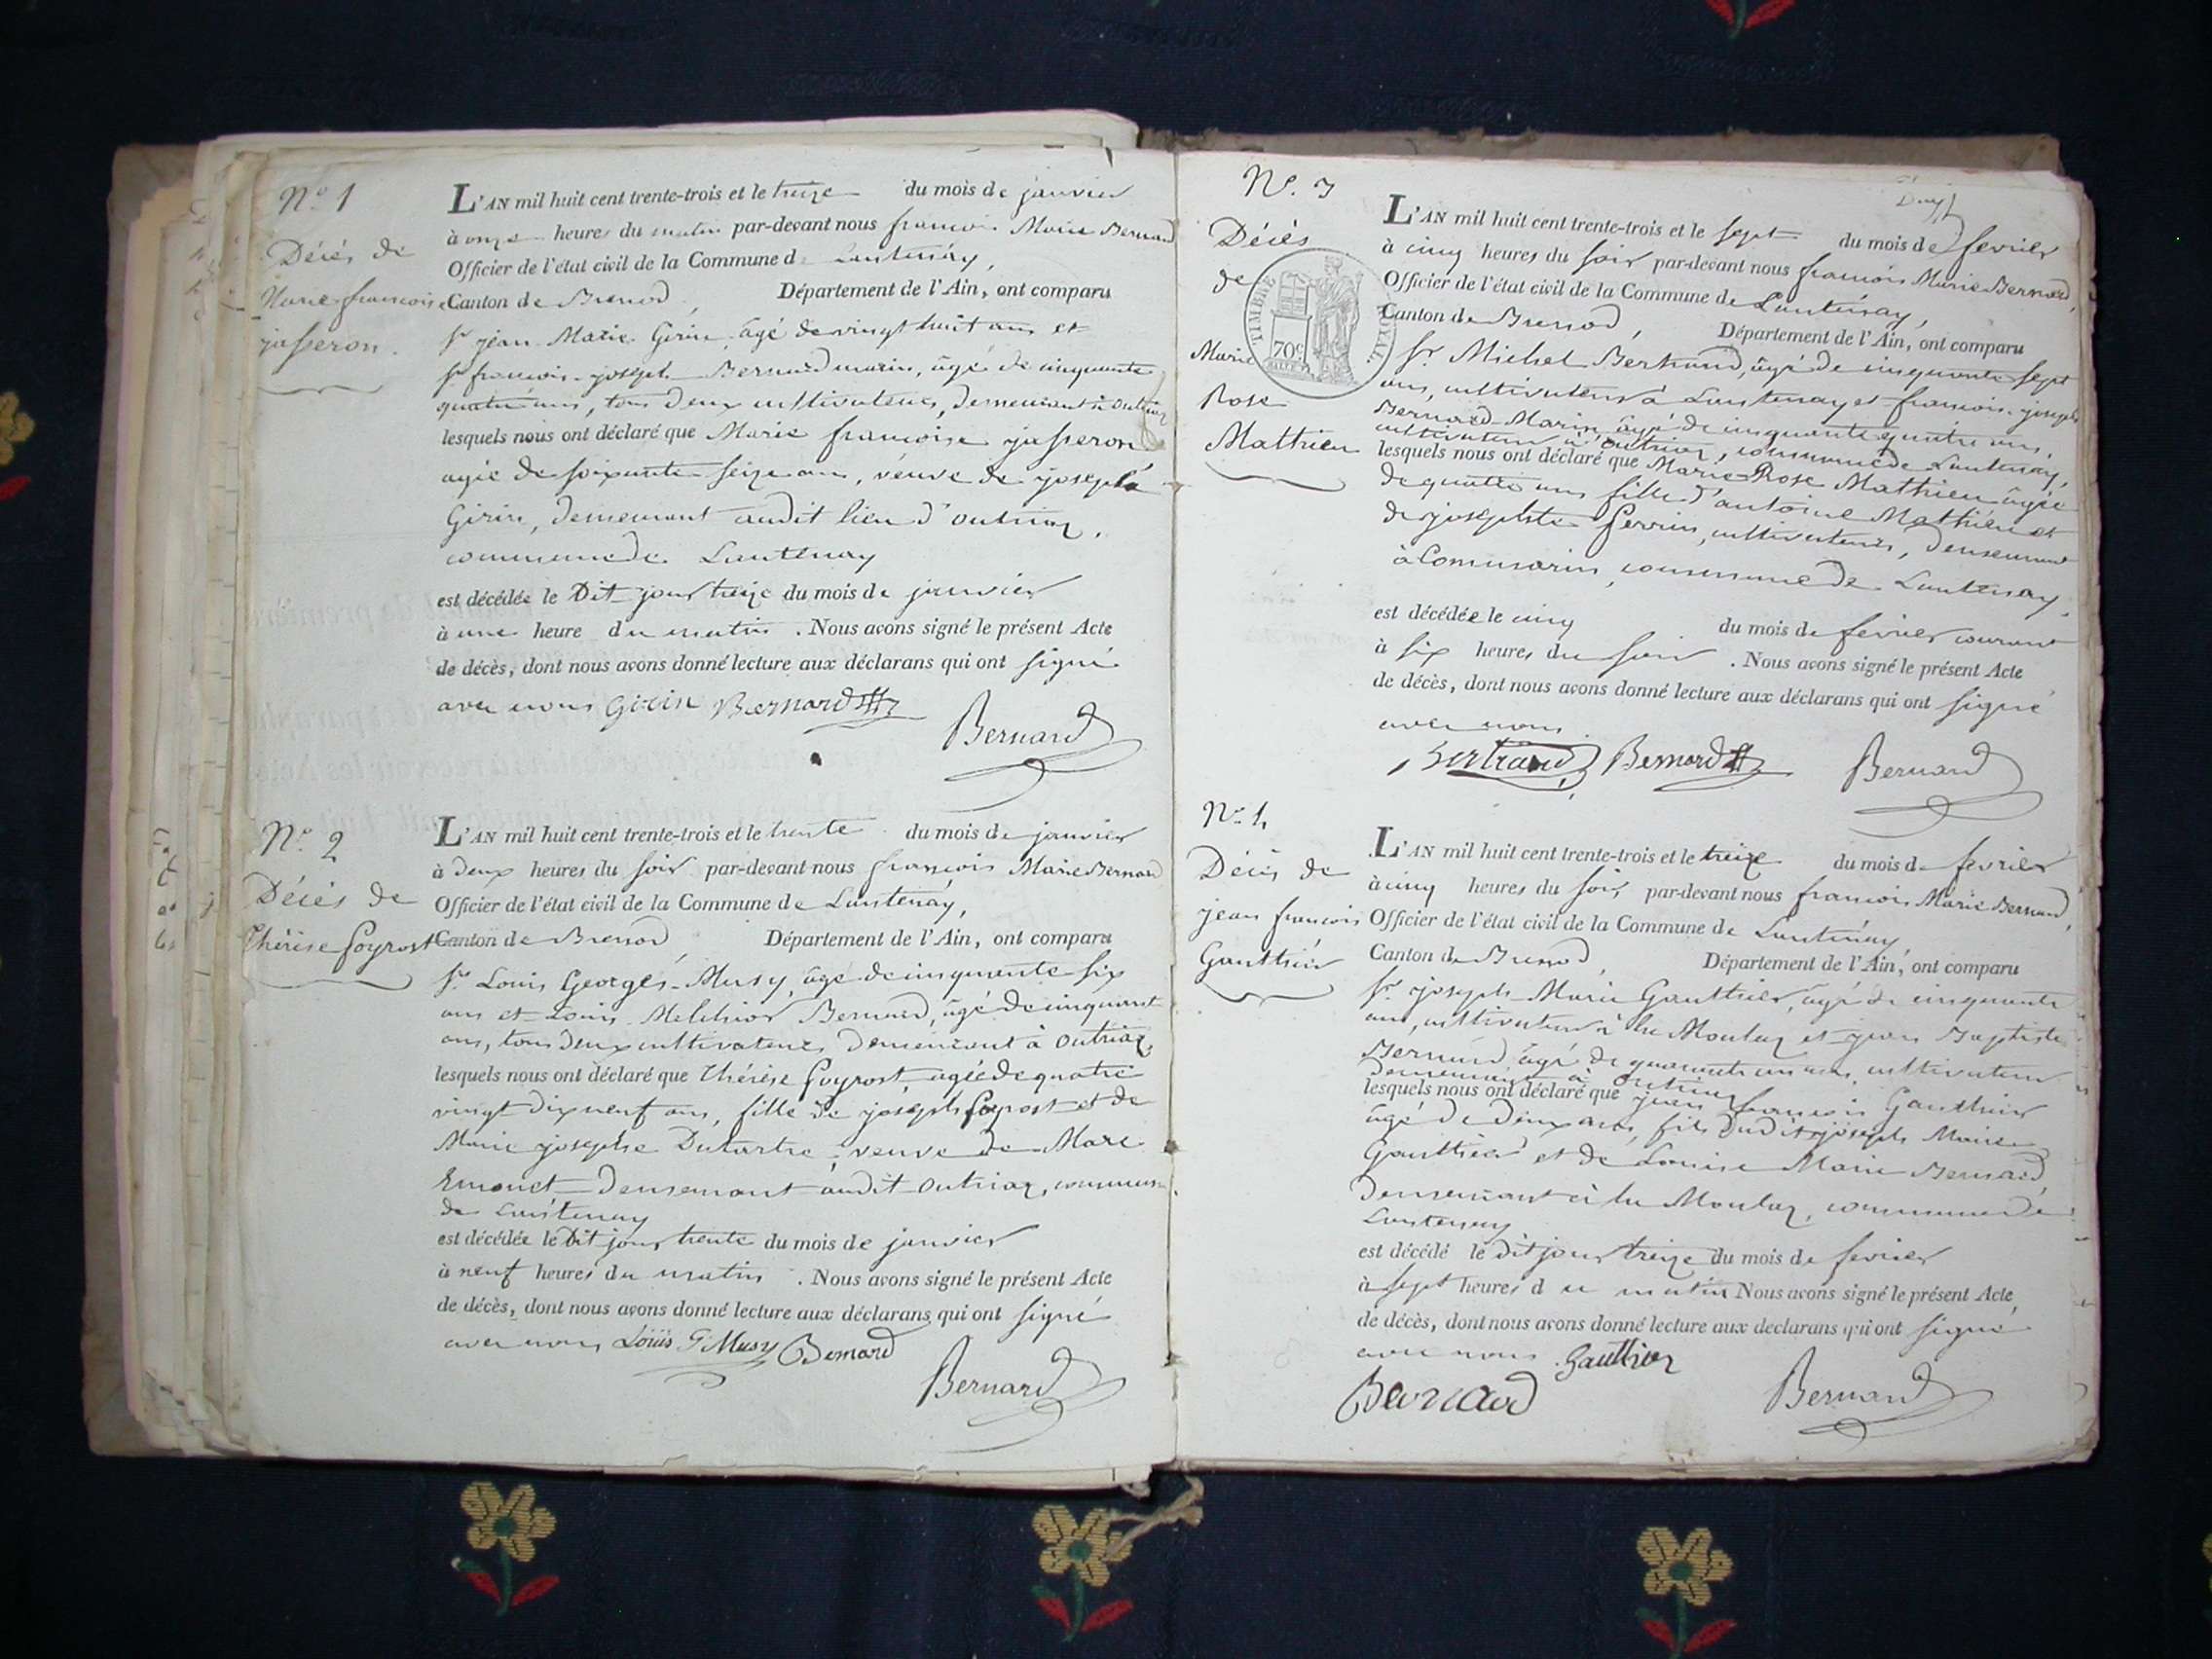 N.º 1
Décès de
Marie françoise
jasseron.
L'AN mil huit cent trente-trois et le treize du mois de janvier
à onze heures du matin par-devant nous françois Marie Bernard
Officier de l'état civil de la Commune de Lantenay,
Canton de Brenod, Département de l'Ain, ont comparu
Sr jean Marie Girin, âgé de vingt huit ans et
Sr françois-joseph Bernard marin, âgé de cinquante
quatre ans, tous deux cultivateurs, demeurant à outriaz
lesquels nous ont déclaré que Marie françoise jasseron
agée de soixante seize ans, veuve de joseph
Girin, demeurant audit lieu d'outriaz,
commune de Lantenay
est décédée le Dit jour treize du mois de janvier
à une heure du matin. Nous avons signé le présent Acte
de décès, dont nous avons donné lecture aux déclarans qui ont signé
avec nous Girin Bernard
Bernard
N.º 2
Décès de
Thérèse Goyrost
L'AN mil huit cent trente-trois et le trente du mois de janvier
à Deux heures du soir par-devant nous françois Marie Bernard
Officier de l'état civil de la Commune de Lantenay,
Canton de Brenod, Département de l'Ain, ont comparu
Sr Louis Georges-Musy, âgé de cinquante six
ans et Louis Melchior Bernard, âgé de cinquante
ans, tous deux cultivateurs demeurant à outriaz,
lesquels nous ont déclaré que Thérèse Goyrost, agée de quatre
vingt dix neuf ans, fille de joseph Goyrost et de
Marie josephe Dutartre, veuve de Marc
Emonet demeurant audit outriaz, commune
de Lantenay
est décédée le Dit jour trente du mois de janvier
à neuf heures du matin. Nous avons signé le présent Acte
de décès, dont nous avons donné lecture aux déclarans qui ont signé
avec nous Louis G. Musy Bernard
Bernard
N.º 3
Décès
de
Marie
Rose
Mathieu
TIMBRE ROYAL
70c
L'AN mil huit cent trente-trois et le sept du mois de fevrier
à cinq heures du soir par-devant nous françois Marie Bernard,
Officier de l'état civil de la Commune de Lantenay,
Canton de Brenod, Département de l'Ain, ont comparu
Sr Michel Bertrand, âgé de cinquante sept
ans, cultivateur à Lantenay et françois-joseph
Bernard Marin, âgé de cinquante quatre ans,
cultivateur à outriaz, commune de Lantenay,
lesquels nous ont déclaré que Marie-Rose Mathieu âgée
de quatre ans fille d'antoine Mathieu et
de josephte Perrin, cultivateurs, demeurant
à Comunarin, commune de Lantenay,
est décédée le cinq du mois de fevrier courant
à six heures du soir. Nous avons signé le présent Acte
de décès, dont nous avons donné lecture aux déclarans qui ont signé
avec nous
Bertrand Bernard Bernard
N.º 4
Décès de
jean françois
Gauthier
L'AN mil huit cent trente-trois et le treize du mois de fevrier
à cinq heures du soir par-devant nous françois Marie Bernard,
Officier de l'état civil de la Commune de Lantenay,
Canton de Brenod, Département de l'Ain, ont comparu
Sr joseph Marie Gauthier, âgé de cinquante
ans, cultivateur à la Moulaz et jean Baptiste
Bernard âgé de quarante un ans, cultivateur
demeurant à outriaz
lesquels nous ont déclaré que jean françois Gauthier
âgé de Deux ans, fils dudit joseph Marie
Gauthier et de Louise Marie Bernard,
demeurant à la Moulaz, commune de
Lantenay
est décédé le dit jour treize du mois de fevrier
à sept heures du matin Nous avons signé le présent Acte
de décès, dont nous avons donné lecture aux declarans qui ont signé
avec nous Gauthier
Bernard Bernard